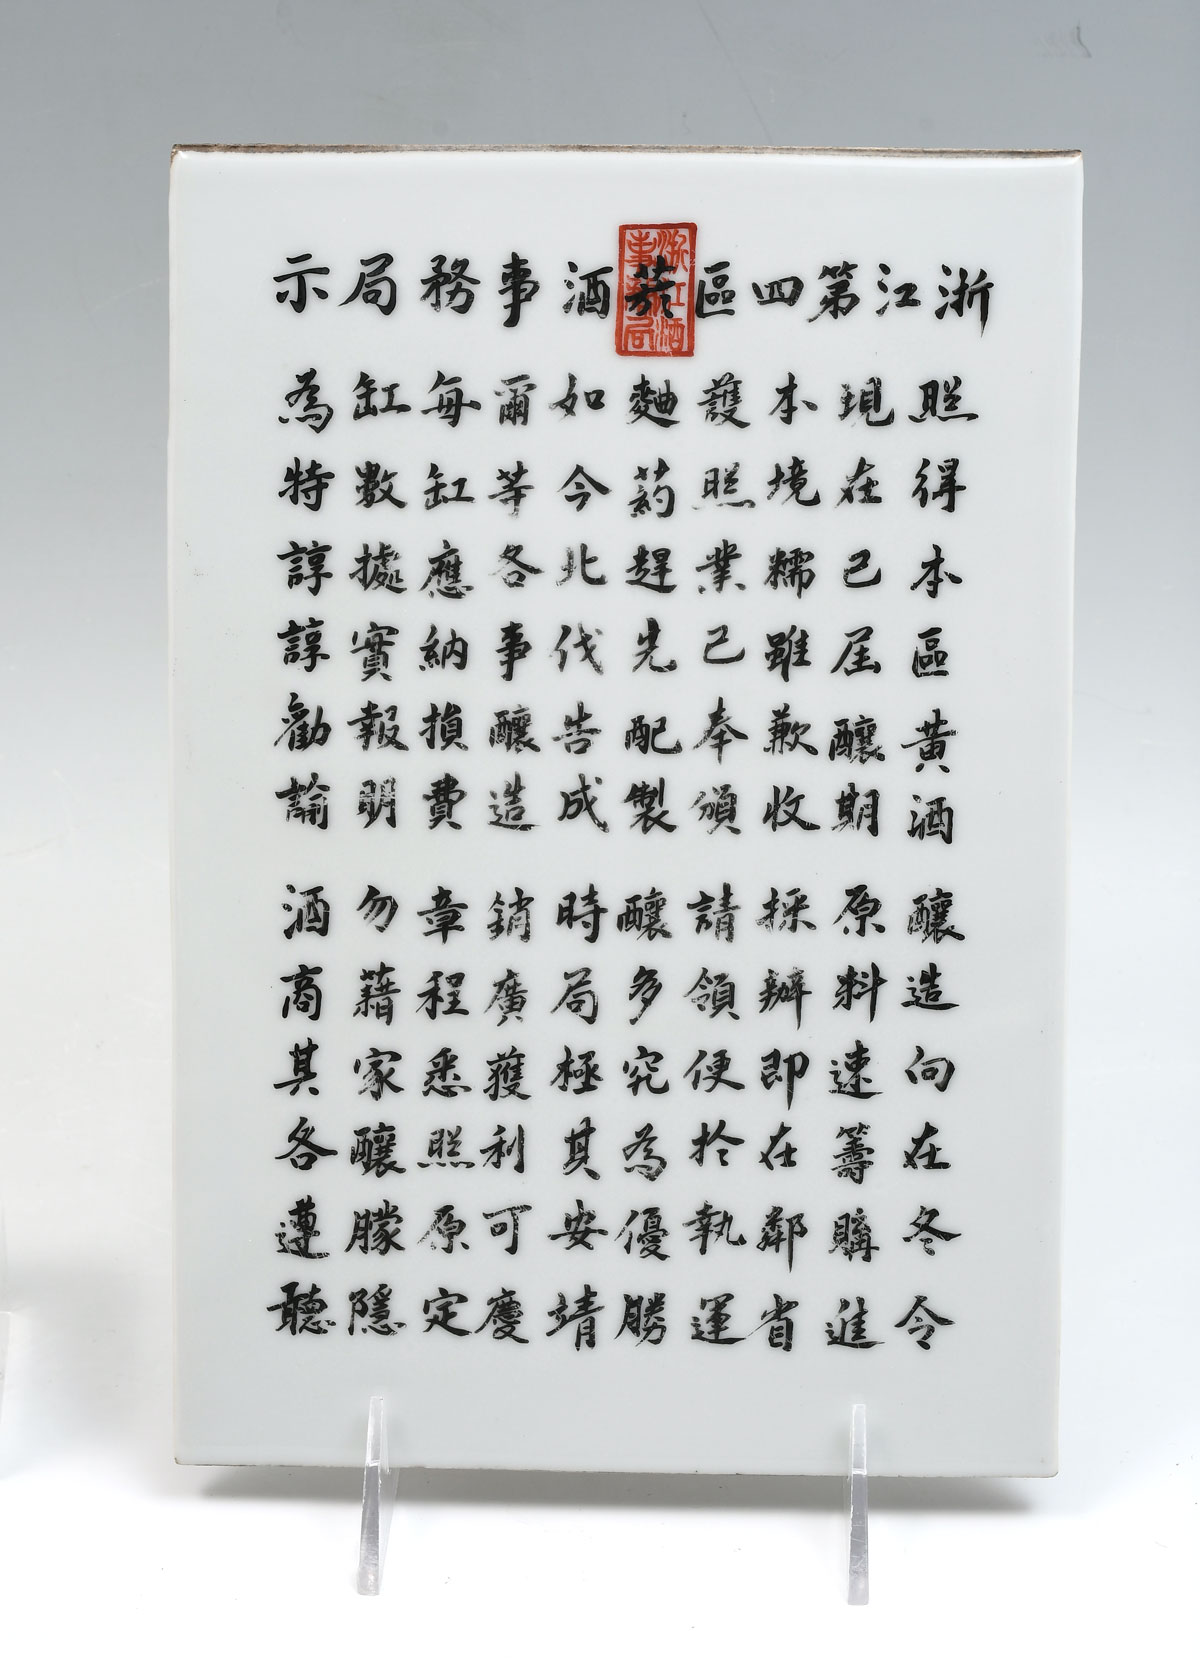 浙江第四區菸酒事務局示
照得本區黃酒釀造向在冬令
現在已屆釀期原料速籌購進
本境糯雖歉收採辦即在鄰省
護照業已奉頒請領便於執運
麯葯趕先配製釀多究為優勝
如今北伐告成時局極其安靖
爾等各事釀造銷廣獲利可慶
每缸應納損費章程悉照原定
缸數據實報明勿藉家釀朦隱
為特諄諄勸諭酒商其各遵聽
浙江酒事務局